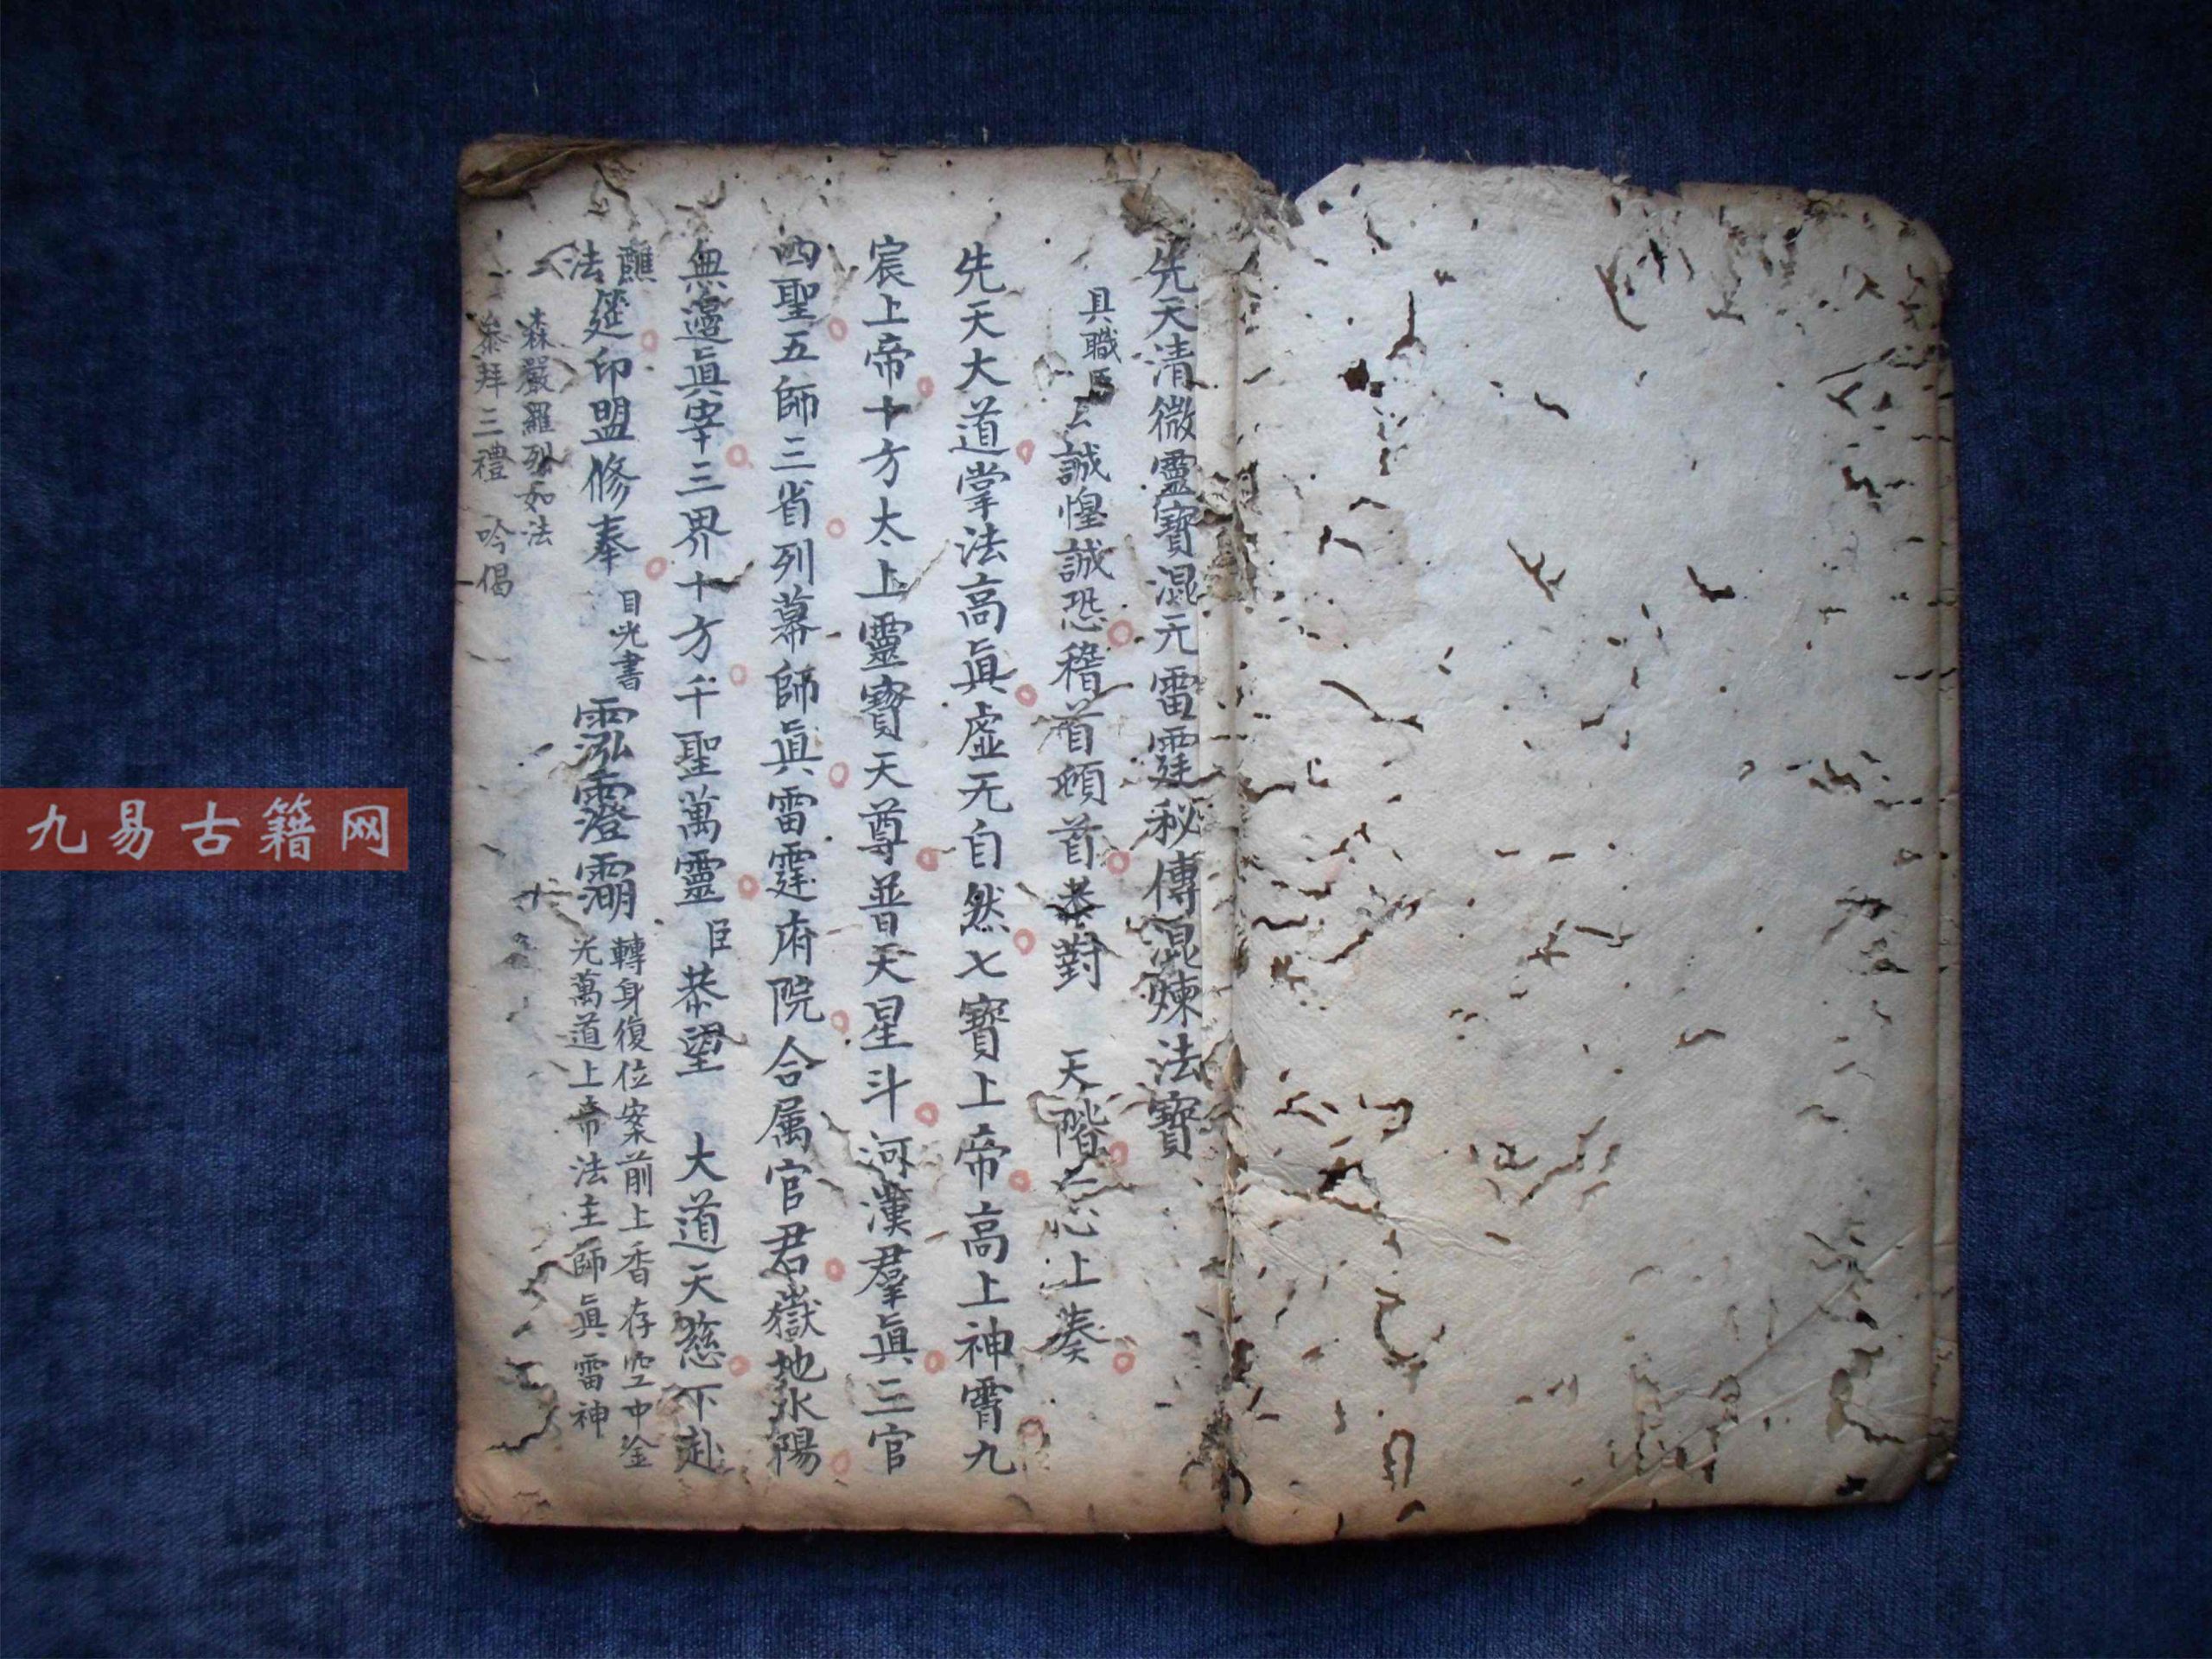 先天清微靈寶混元雷霆秘傳混煉法寶
具職
誠惶誠恐稽首頓首恭對 天階 心上奏
先天大道掌法高眞虛无自然七寶上帝高上神霄九
宸上帝十方太上靈寶天尊普天星斗河漢羣眞三官
四聖五師三省列幕師眞雷霆府院合属官君嶽地水陽
無邊眞宰三界十方千聖萬靈臣恭望 大道天慈下赴
醮法筵印盟修奉 目光書 轉身復位案前上香存空中金
光萬道上帝法主師眞雷神
森嚴羅列如法
叅拜三禮 吟偈
九易古籍网